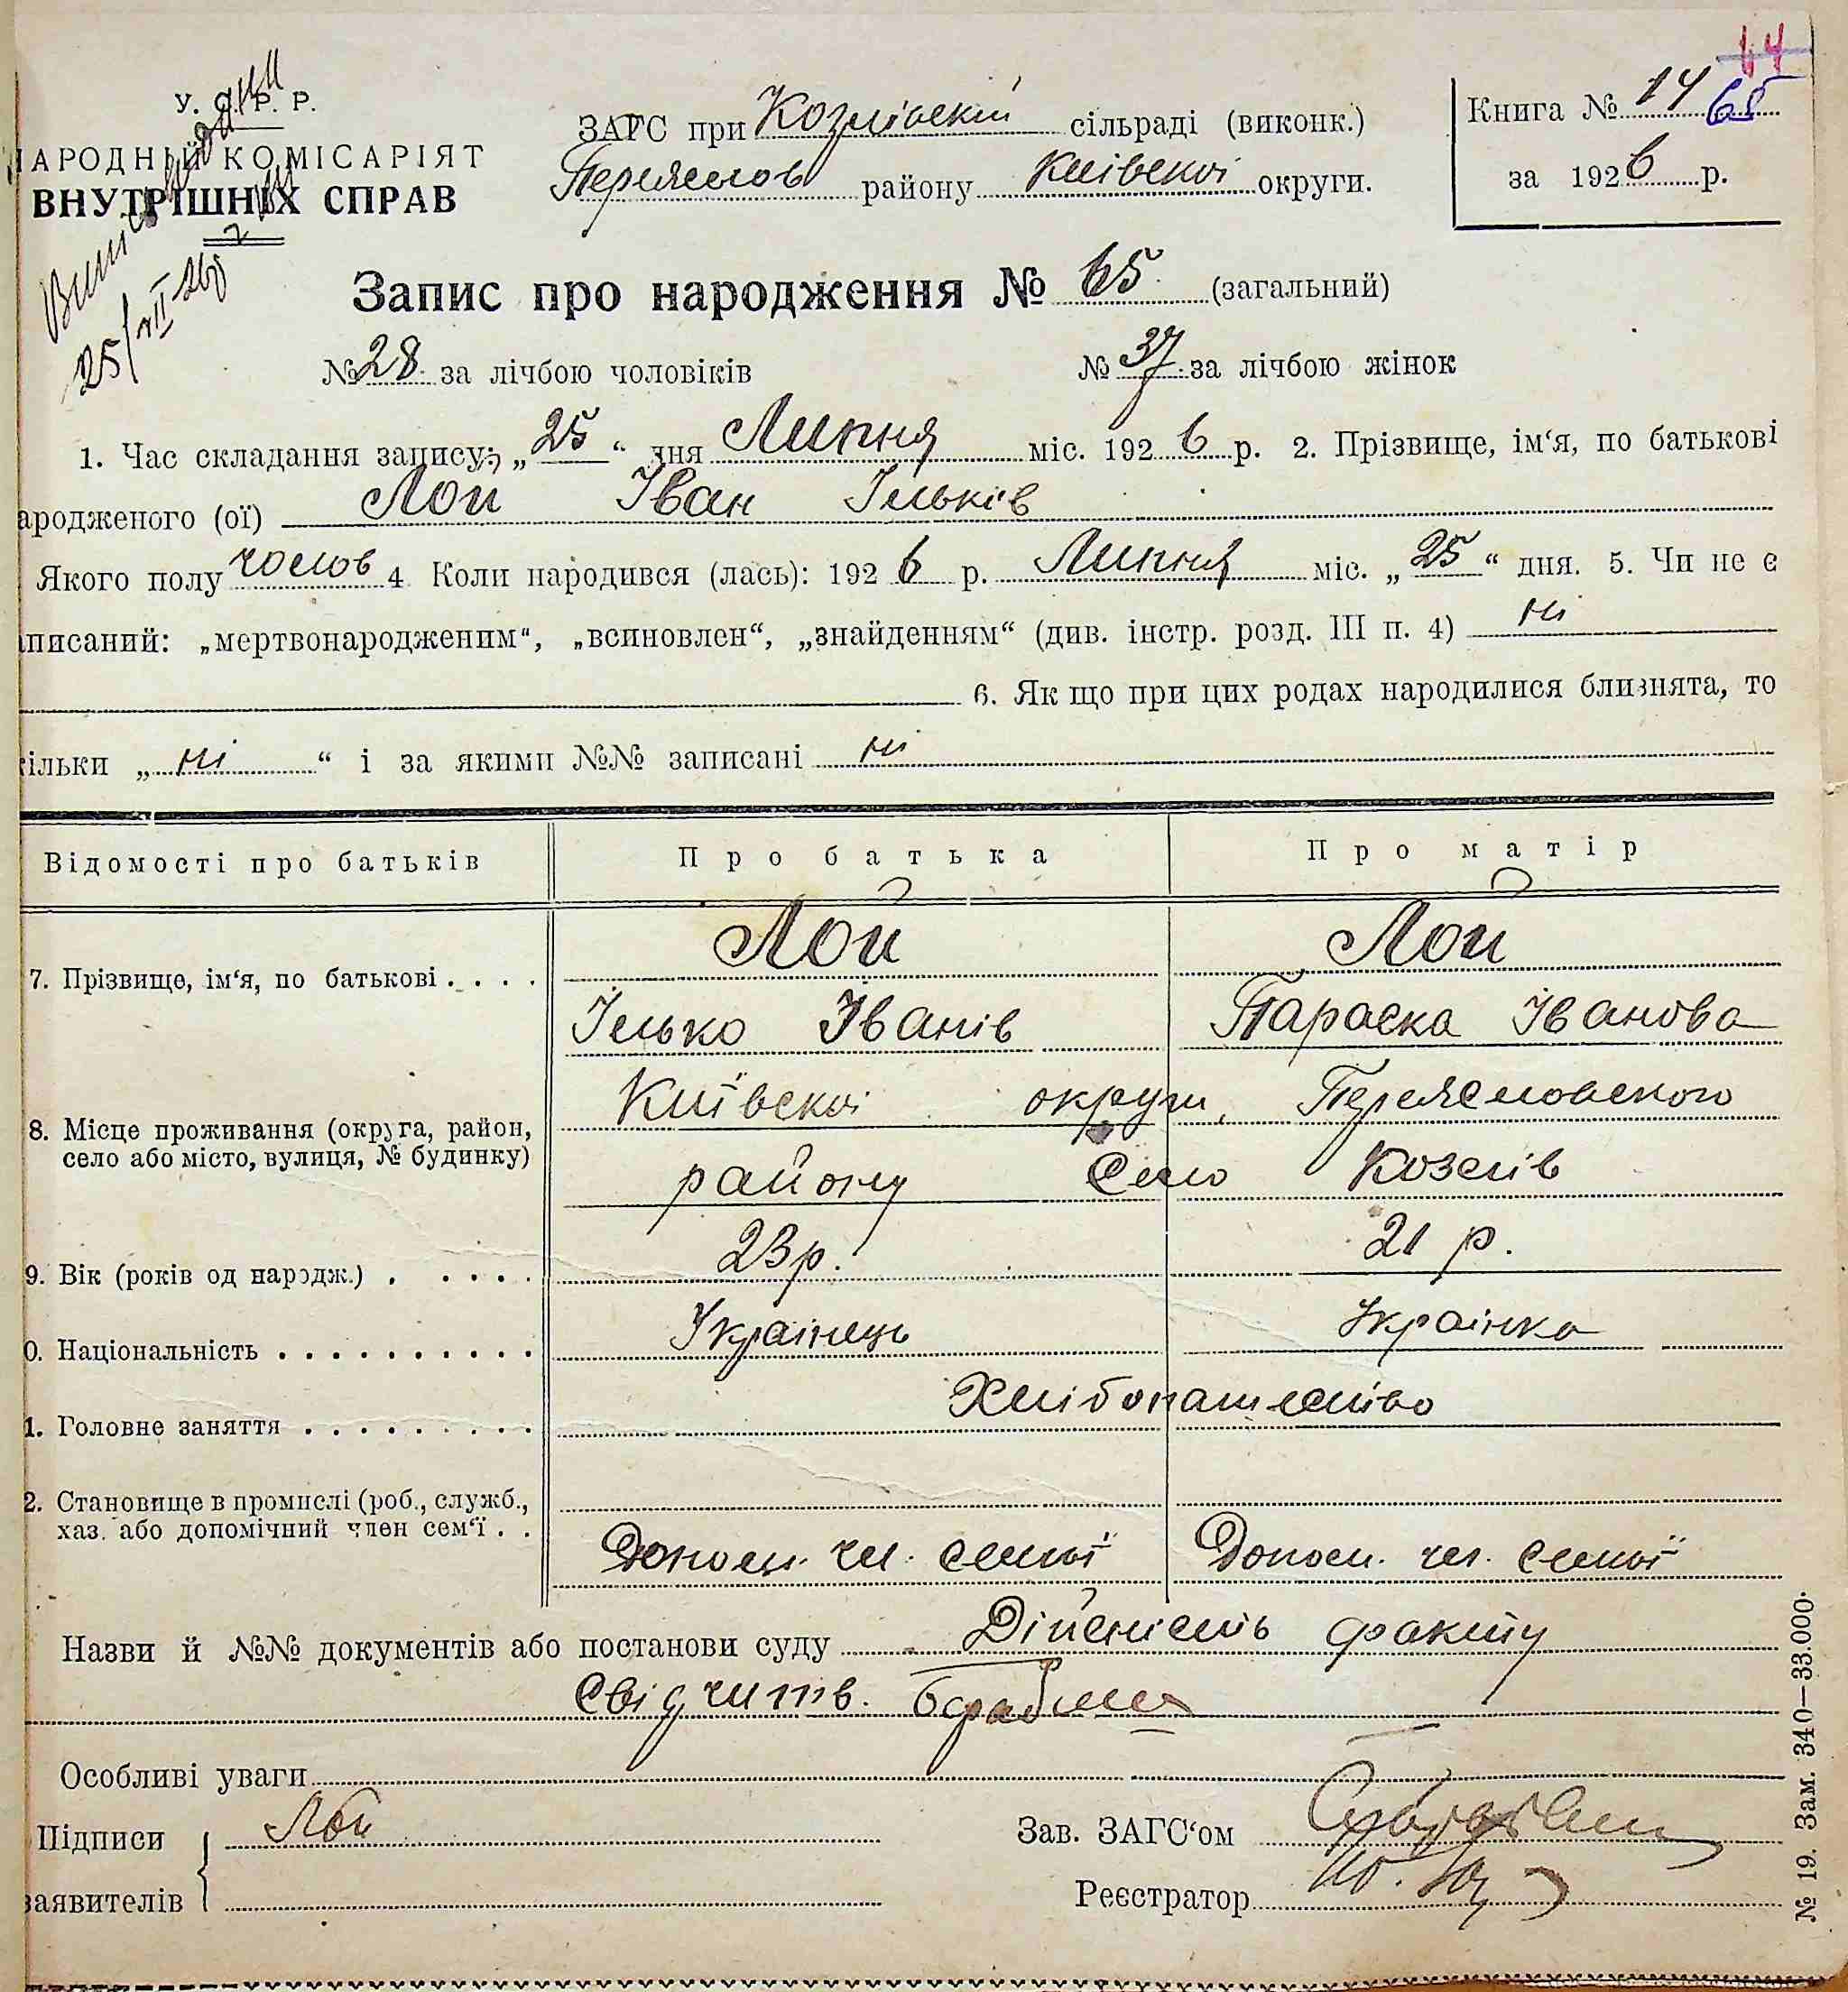 64
У. С. Р. Р.
АРОДНІЙ КОМІСАРІЯТ
ВНУТРІШНІХ СПРАВ
25/VII-26
ЗАГС при Козлівскій сільраді (виконк.)
Переяслов району Київскої округи.
Книга № 14 65
за 1926 р.
Запис про народження № 65 (загальний)
№ 28 за лічбою чоловіків № 37 за лічбою жінок
1. Час складання запису: „25“ дня Липня міс. 1926 р. 2. Прізвище, ім‘я, по батькові
ародженого (ої) Лой Іван Ільків
Якого полу чолов 4 Коли народився (лась): 1926 р. Липня міс. „25“ дня. 5. Чи не є
писаний: „мертвонародженим“, „всиновлен“, „знайденням“ (див. інстр. розд. III п. 4) ні
6. Як що при цих родах народилися близнята, то
ільки „ні“ і за якими №№ записані ні
Відомості про батьків Про батька Про матір
Лой Лой
7. Прізвище, ім‘я, по батькові . . . .
Ілько Іванів Параска Іванова
Київскої округи, Переясловского
8. Місце проживання (округа, район,
село або місто, вулиця, № будинку)
району Село Козлів
9. Вік (років од народж.) . . . . . 23 р. 21 р.
0. Національність . . . . . . . . . . Українець Українка
1. Головне заняття . . . . . . . . . Хлібопашество
2. Становище в промислі (роб., служб.,
хаз. або допомічний член сем‘ї . .
Допом. чл. семьї Допом. чл. семьї
Назви й №№ документів або постанови суду Дійсність факту
свідчить.
Особливі уваги
Підписи Лой Зав. ЗАГС‘ом
заявителів Реєстратор
№ 19. Зам. 340—33.000.